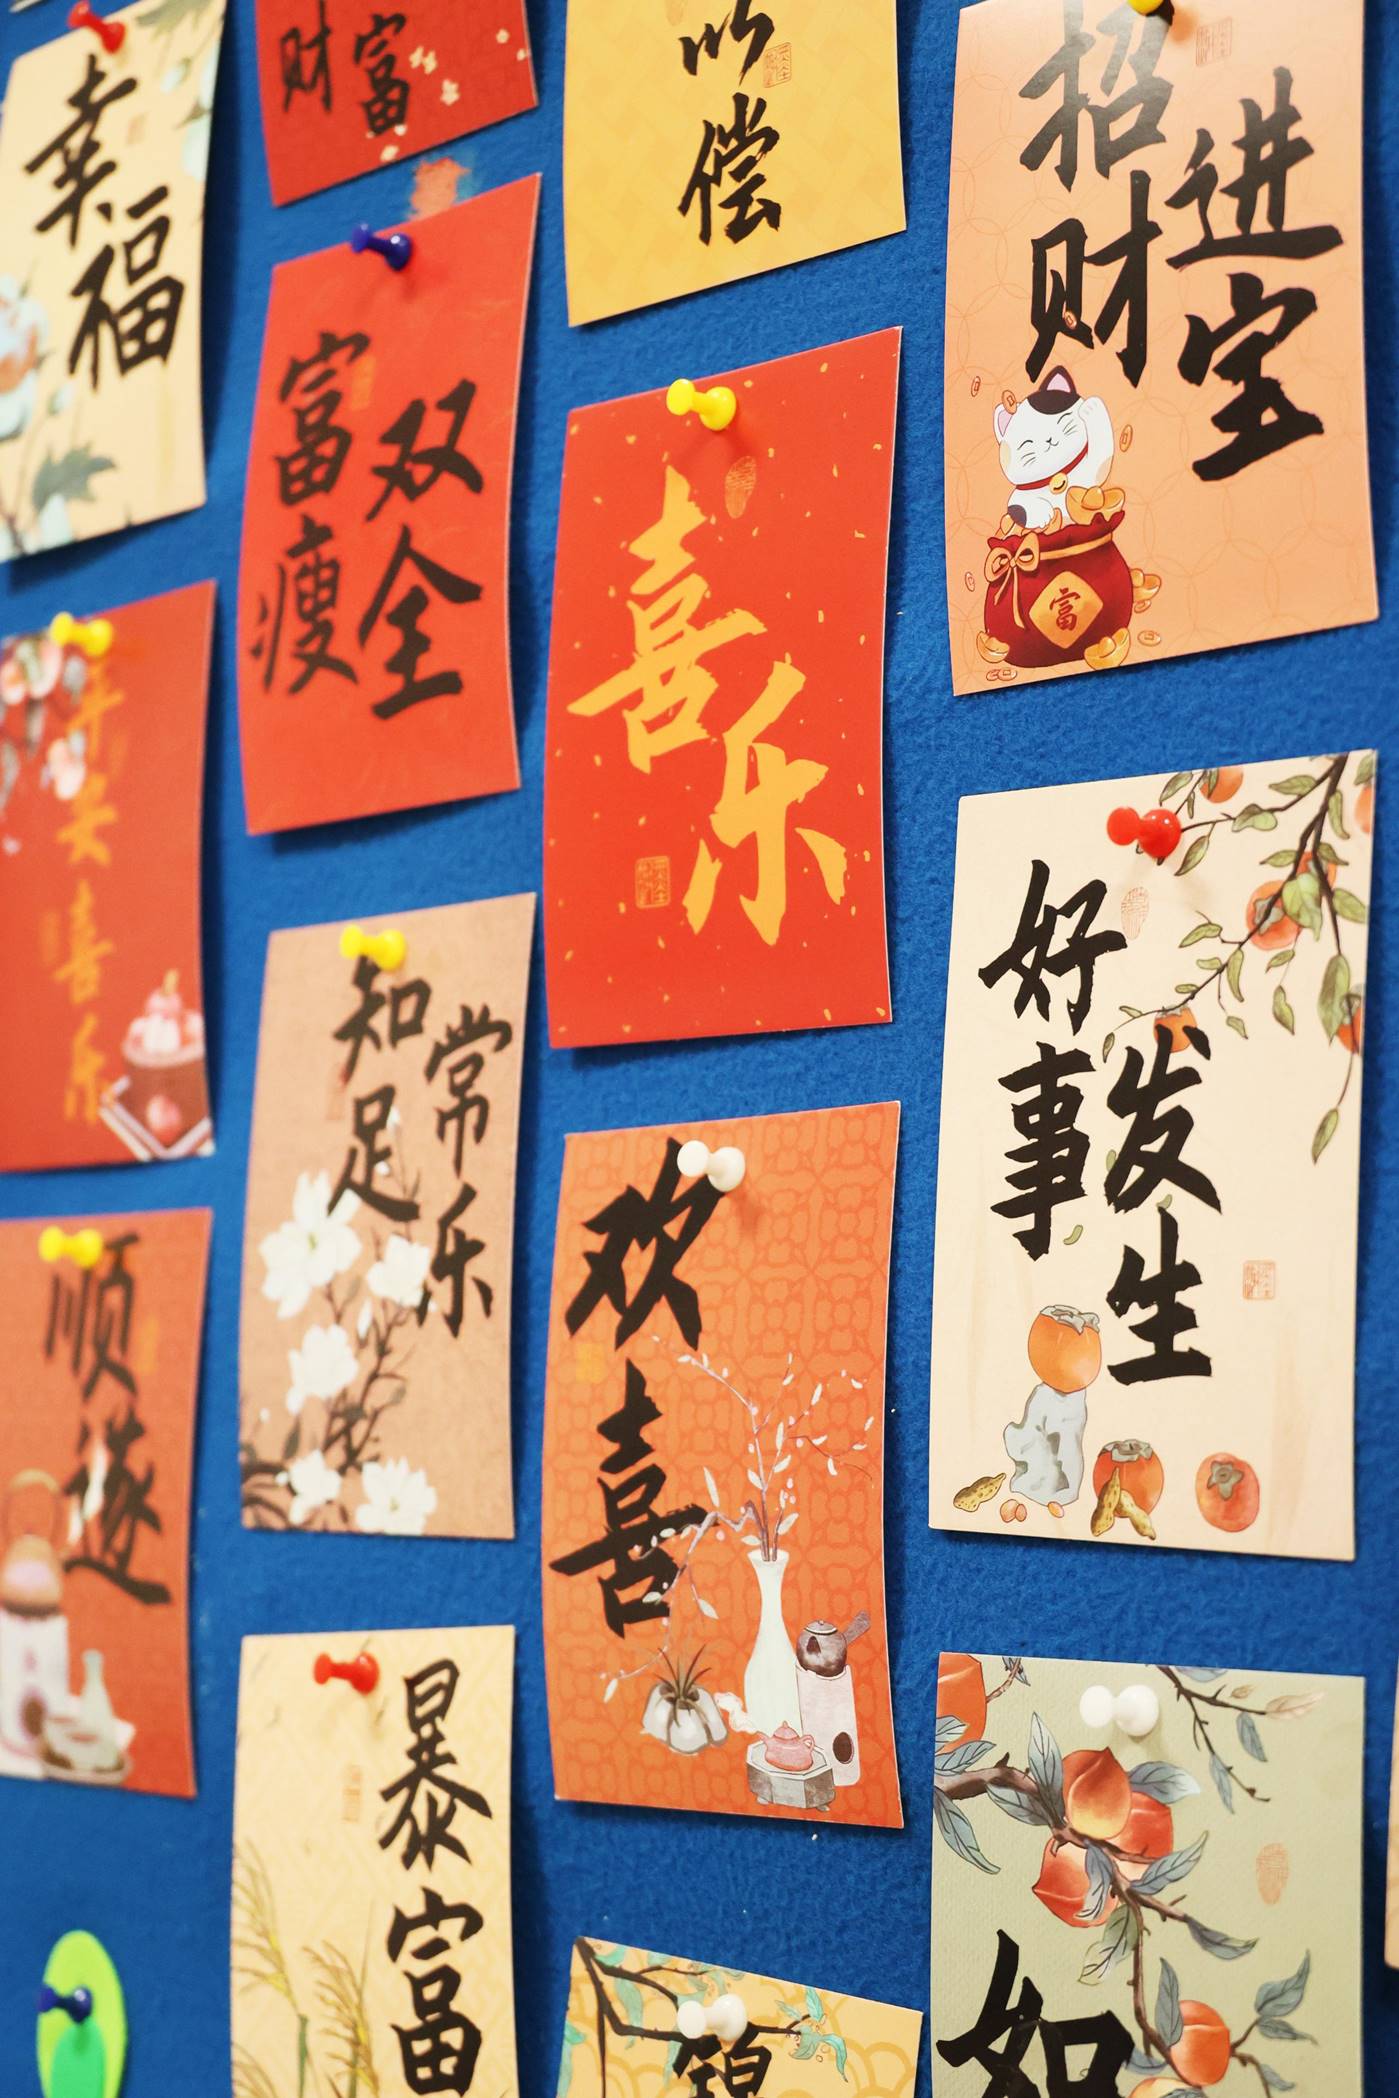 幸福
平安喜乐
顺遂
财富
富瘦
双全
知足
常乐
暴富
以偿
喜乐
欢喜
锦
招财
进宝
富
好事
发生
如